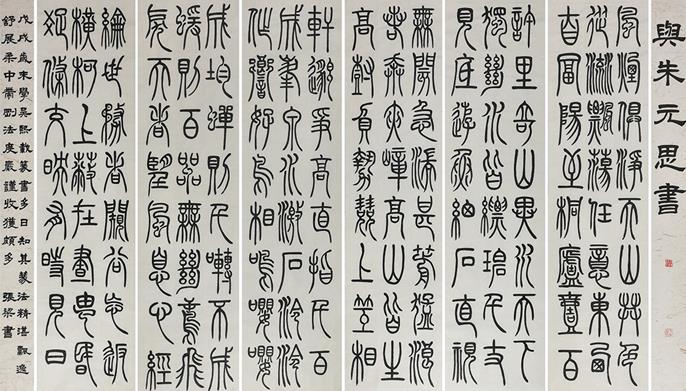 與朱元思書
風煙俱淨天山共色
從流飄蕩任意東西
自富陽至桐廬壹百
許里奇山異水天下
獨絕水皆縹碧千丈
見底游魚細石直視
無閡急湍甚箭猛浪
若奔夾嶂高山皆生
高樹負勢競上互相
軒邈爭高直指千百
成峯泉水激石泠泠
作響好鳥相鳴嚶嚶
成韵蟬則千囀不窮
猨則百叫無絕鳶飛
戾天者望峯息心經
綸世務者闚谷忘返
橫柯上蔽在晝猶昏
疏條交映有時見日
戊戌歲末學吳熙載篆書多日知其篆法精湛飄逸
舒展柔中帶剛法度嚴謹收獲頗多 張梁書